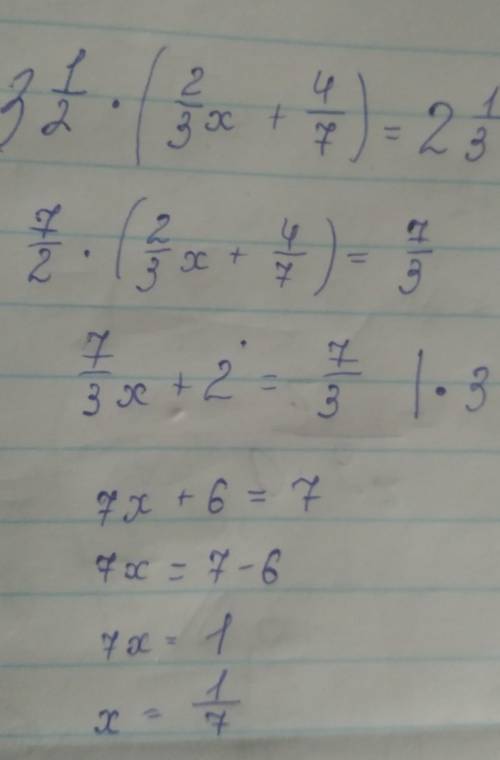 3 1/2 · (2/3 x + 4/7) = 2 1/3
7/2 · (2/3 x + 4/7) = 7/3
7/3 x + 2 = 7/3 | · 3
7x + 6 = 7
7x = 7 - 6
7x = 1
x = 1/7